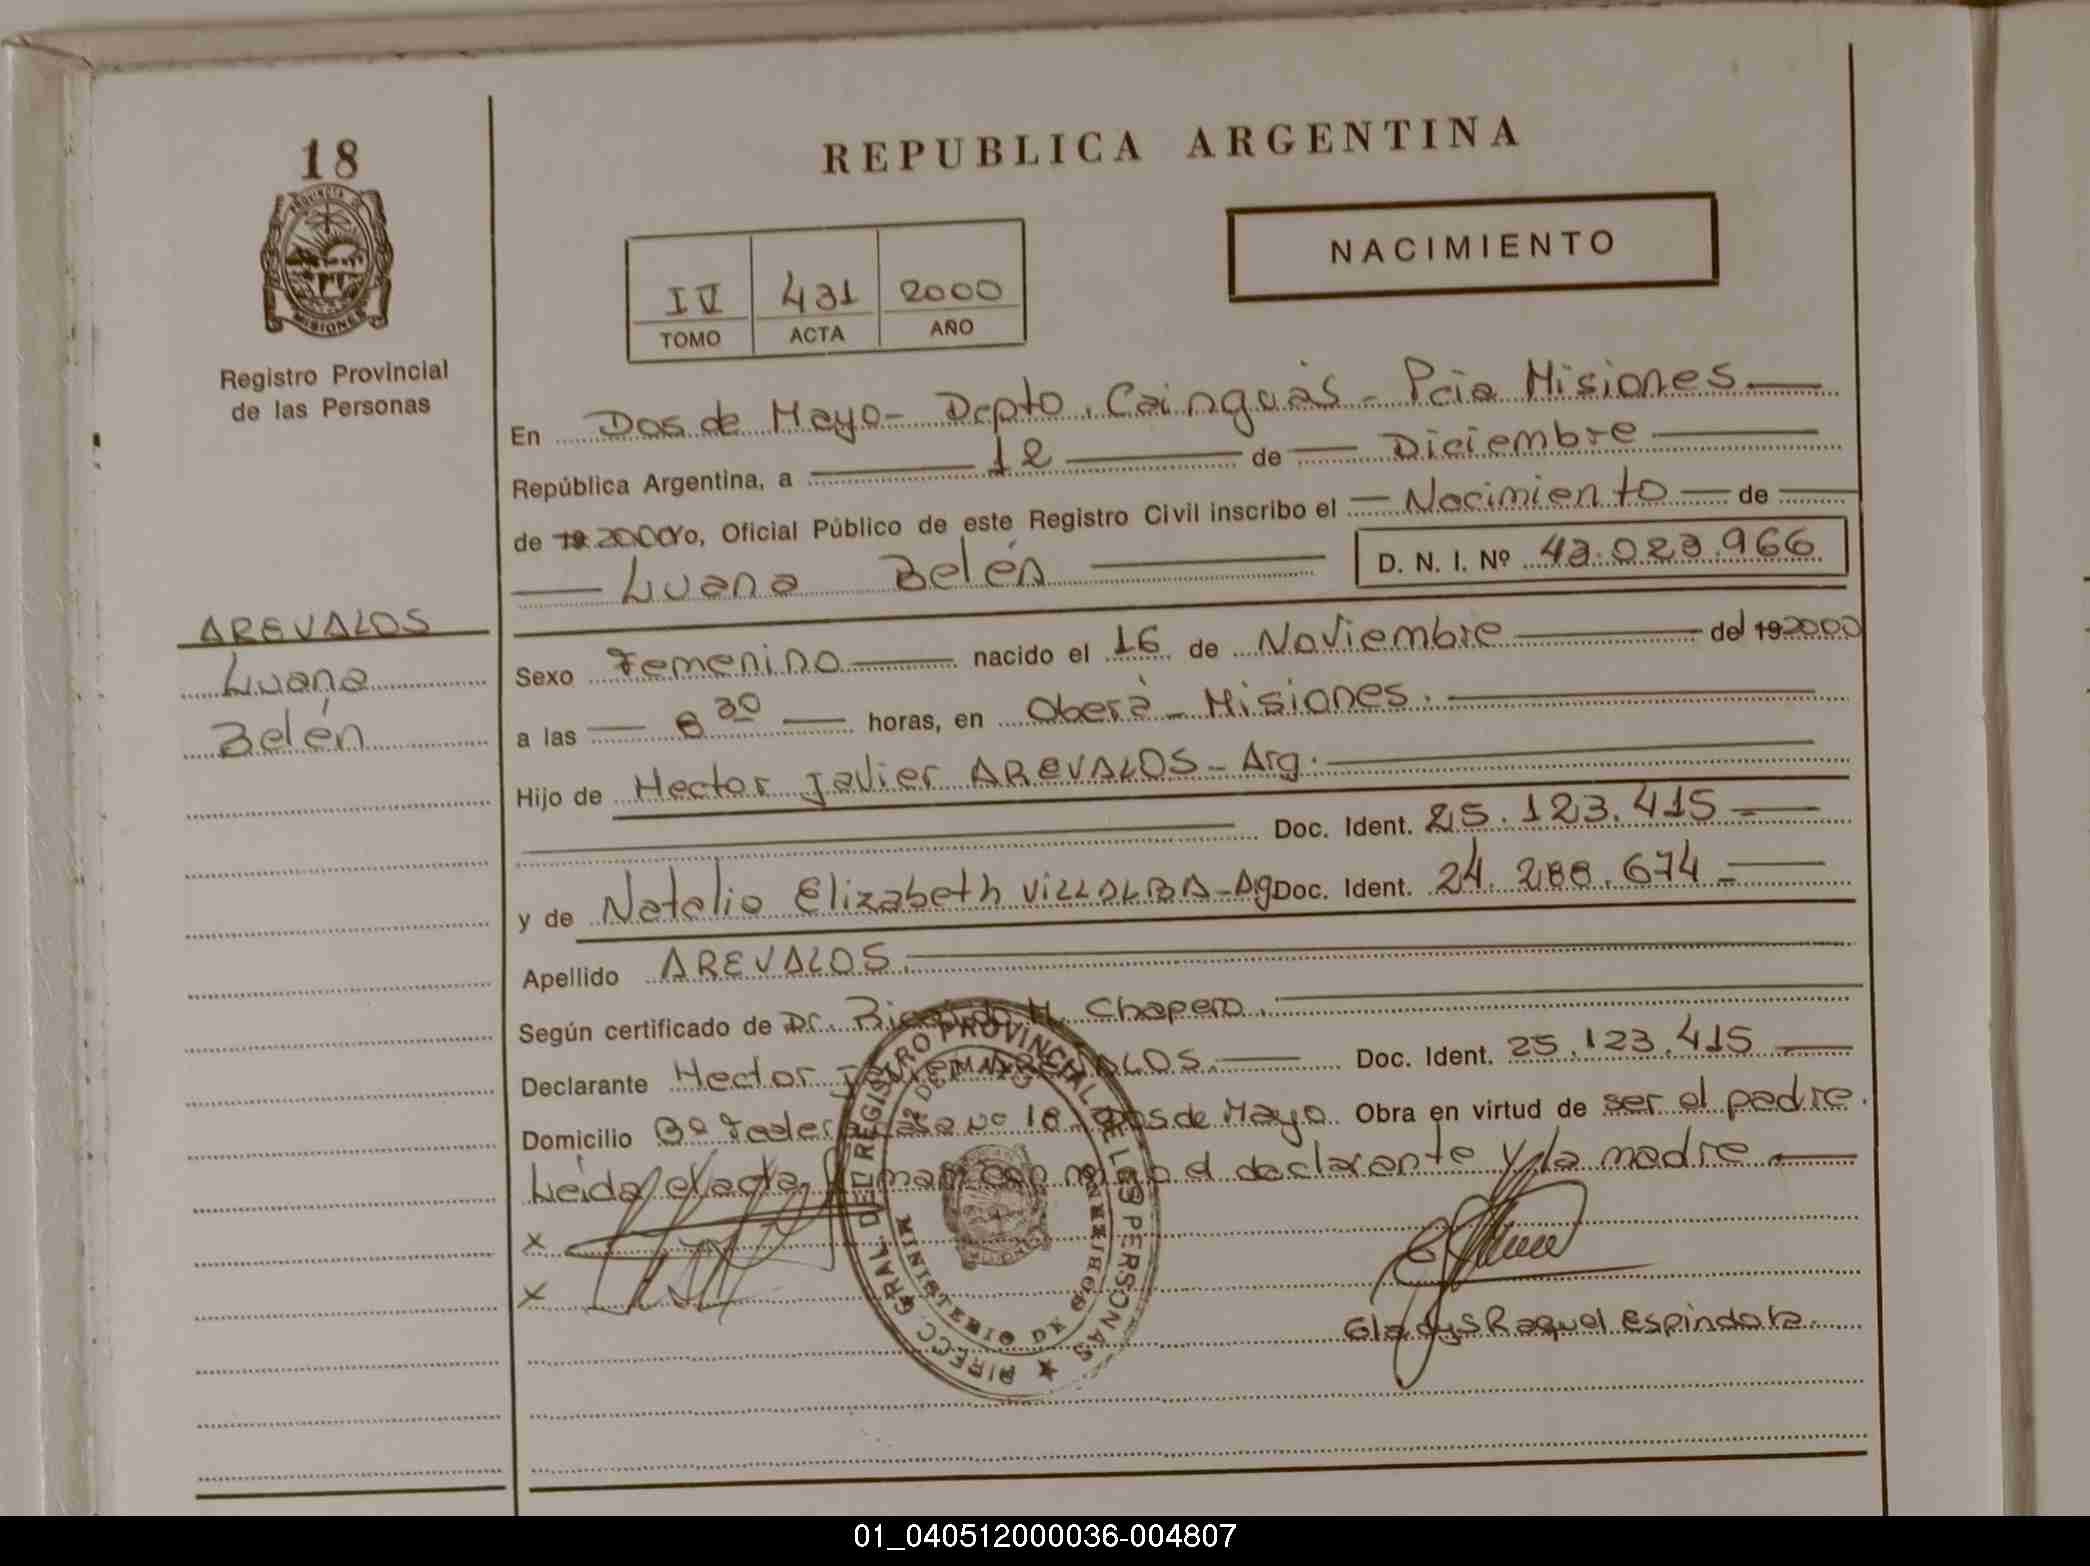 18
PROVINCIA DE
MISIONES
Registro Provincial
de las Personas
AREVALOS
Luana
Belén
REPUBLICA ARGENTINA
IV 431 2000
TOMO ACTA AÑO
NACIMIENTO
En Dos de Mayo - Dcpto. Cainguàs - Pcia Misiones
República Argentina, a 12 de Diciembre
de 19 2000 Yo, Oficial Público de este Registro Civil inscribo el Nacimiento de
Luana Belén D. N. I. Nº 43.023.966
Sexo Femenino nacido el 16 de Noviembre del 19 2000
a las 8 30 horas, en Oberà - Misiones.
Hijo de Hector Javier AREVALOS - Arg.
Doc. Ident. 25.123.415
y de Natalia Elizabeth VILLALBA - Ag Doc. Ident. 24.288.674
Apellido AREVALOS.
Según certificado de Dr. Ricardo H. Chapero.
Declarante Hector Javier AREVALOS. Doc. Ident. 25.123.415
Domicilio Bº casa nº 18 Dos de Mayo. Obra en virtud de ser el padre.
Leida el acta, firman con migo el declarante y la madre
x
x
Gladys Raquel Espindola
DIRECC. GRAL. DEL REGISTRO PROVINCIAL DE LAS PERSONAS
MINISTERIO DE GOBIERNO
DOS DE MAYO
01_040512000036-004807